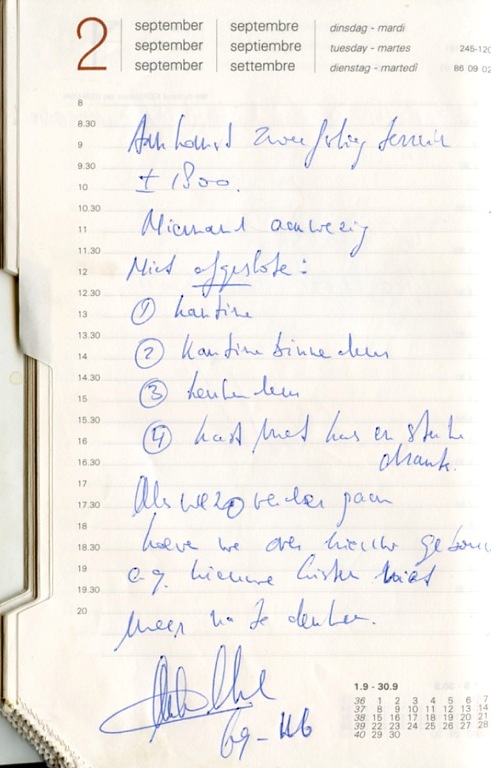 2
september septembre dinsdag - mardi
september septiembre tuesday - martes 245-120
september settembre dienstag - martedì 86 09 02
8
8.30
Aankomst zweefvlieg terrein
9
9.30
± 1800.
10
10.30
Niemand aanwezig
11
11.30
Niet afgeslote:
12
12.30
① kantine
13
13.30
② Kantine binne deur
14
14.30
③ keukendeur
15
15.30
④ kast met kas en sterke
16
drank.
16.30
17
Als we zo verder gaan
17.30
18
hoeve we over nieuwe gebouw
18.30
19
o.g. nieuwe kisten niet
19.30
20
meer na te denken.
69-HB
1.9 - 30.9
36 1 2 3 4 5 6 7
37 8 9 10 11 12 13 14
38 15 16 17 18 19 20 21
39 22 23 24 25 26 27 28
40 29 30